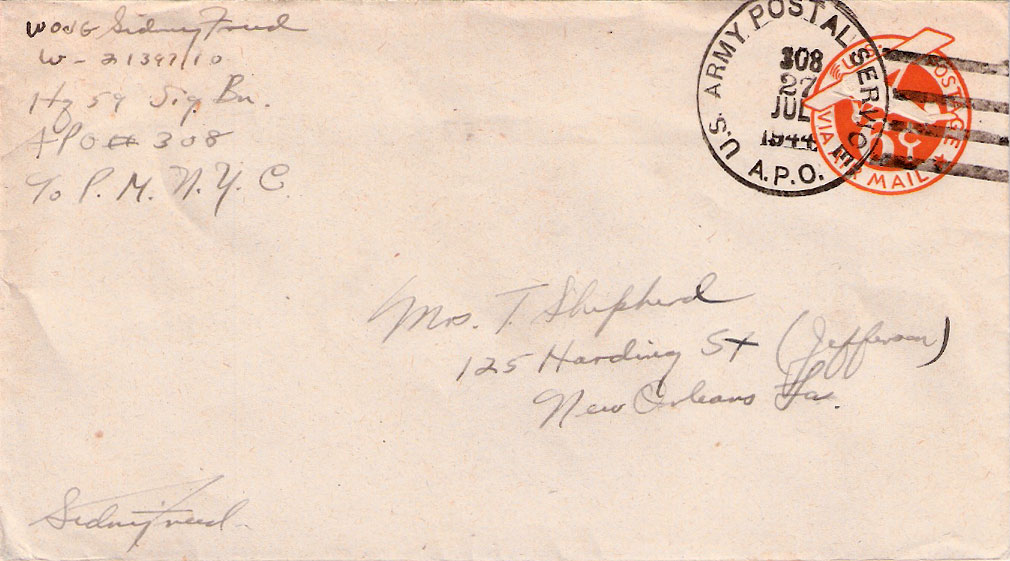 WOJG Sidney Freed
W-2139710
Hq 59 Sig. Bn.
APO # 308
℅ P. M. N. Y. C
U.S. ARMY POSTAL SERVICE
308
27
JUL
1944
A.P.O.
POSTAGE
VIA AIR MAIL
Mrs. T. Shepherd
125 Harding St (Jefferson)
New Orleans La.
Sidney Freed